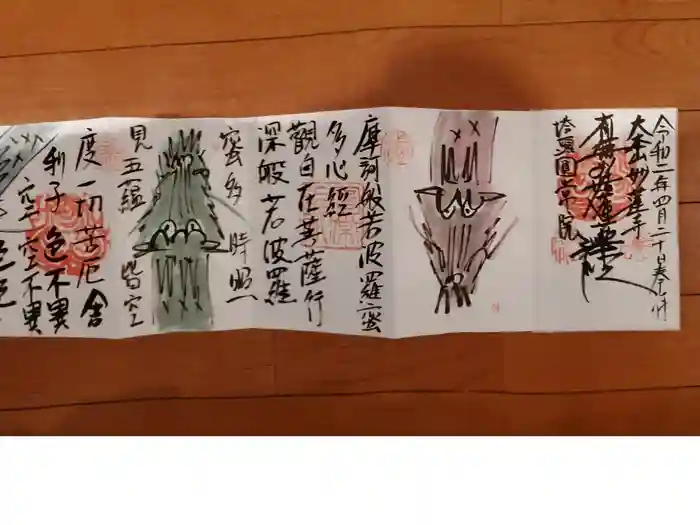 令和二年四月二十日奉拝
大本山妙蓮寺
南無妙法蓮華経
塔頭圓常院
摩訶般若波羅蜜
多心經
觀自在菩薩行
深般若波羅
蜜多 時照
見五蘊 皆空
度一切苦厄舎
利子色不異
空空不異